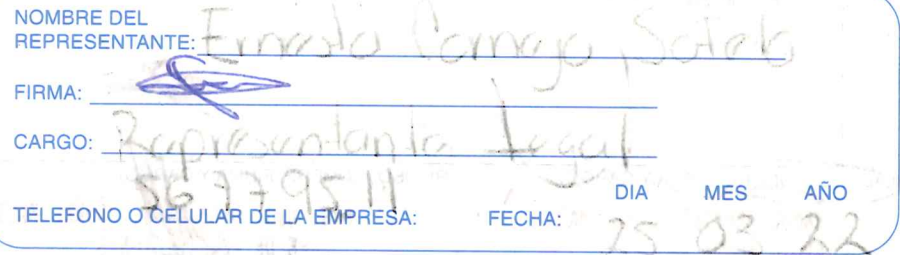 NOMBRE DEL
REPRESENTANTE: Ernesto Cornejo Sotelo
FIRMA:
CARGO: Representante Legal
56779511
DIA MES AÑO
TELEFONO O CELULAR DE LA EMPRESA: FECHA: 25 03 22